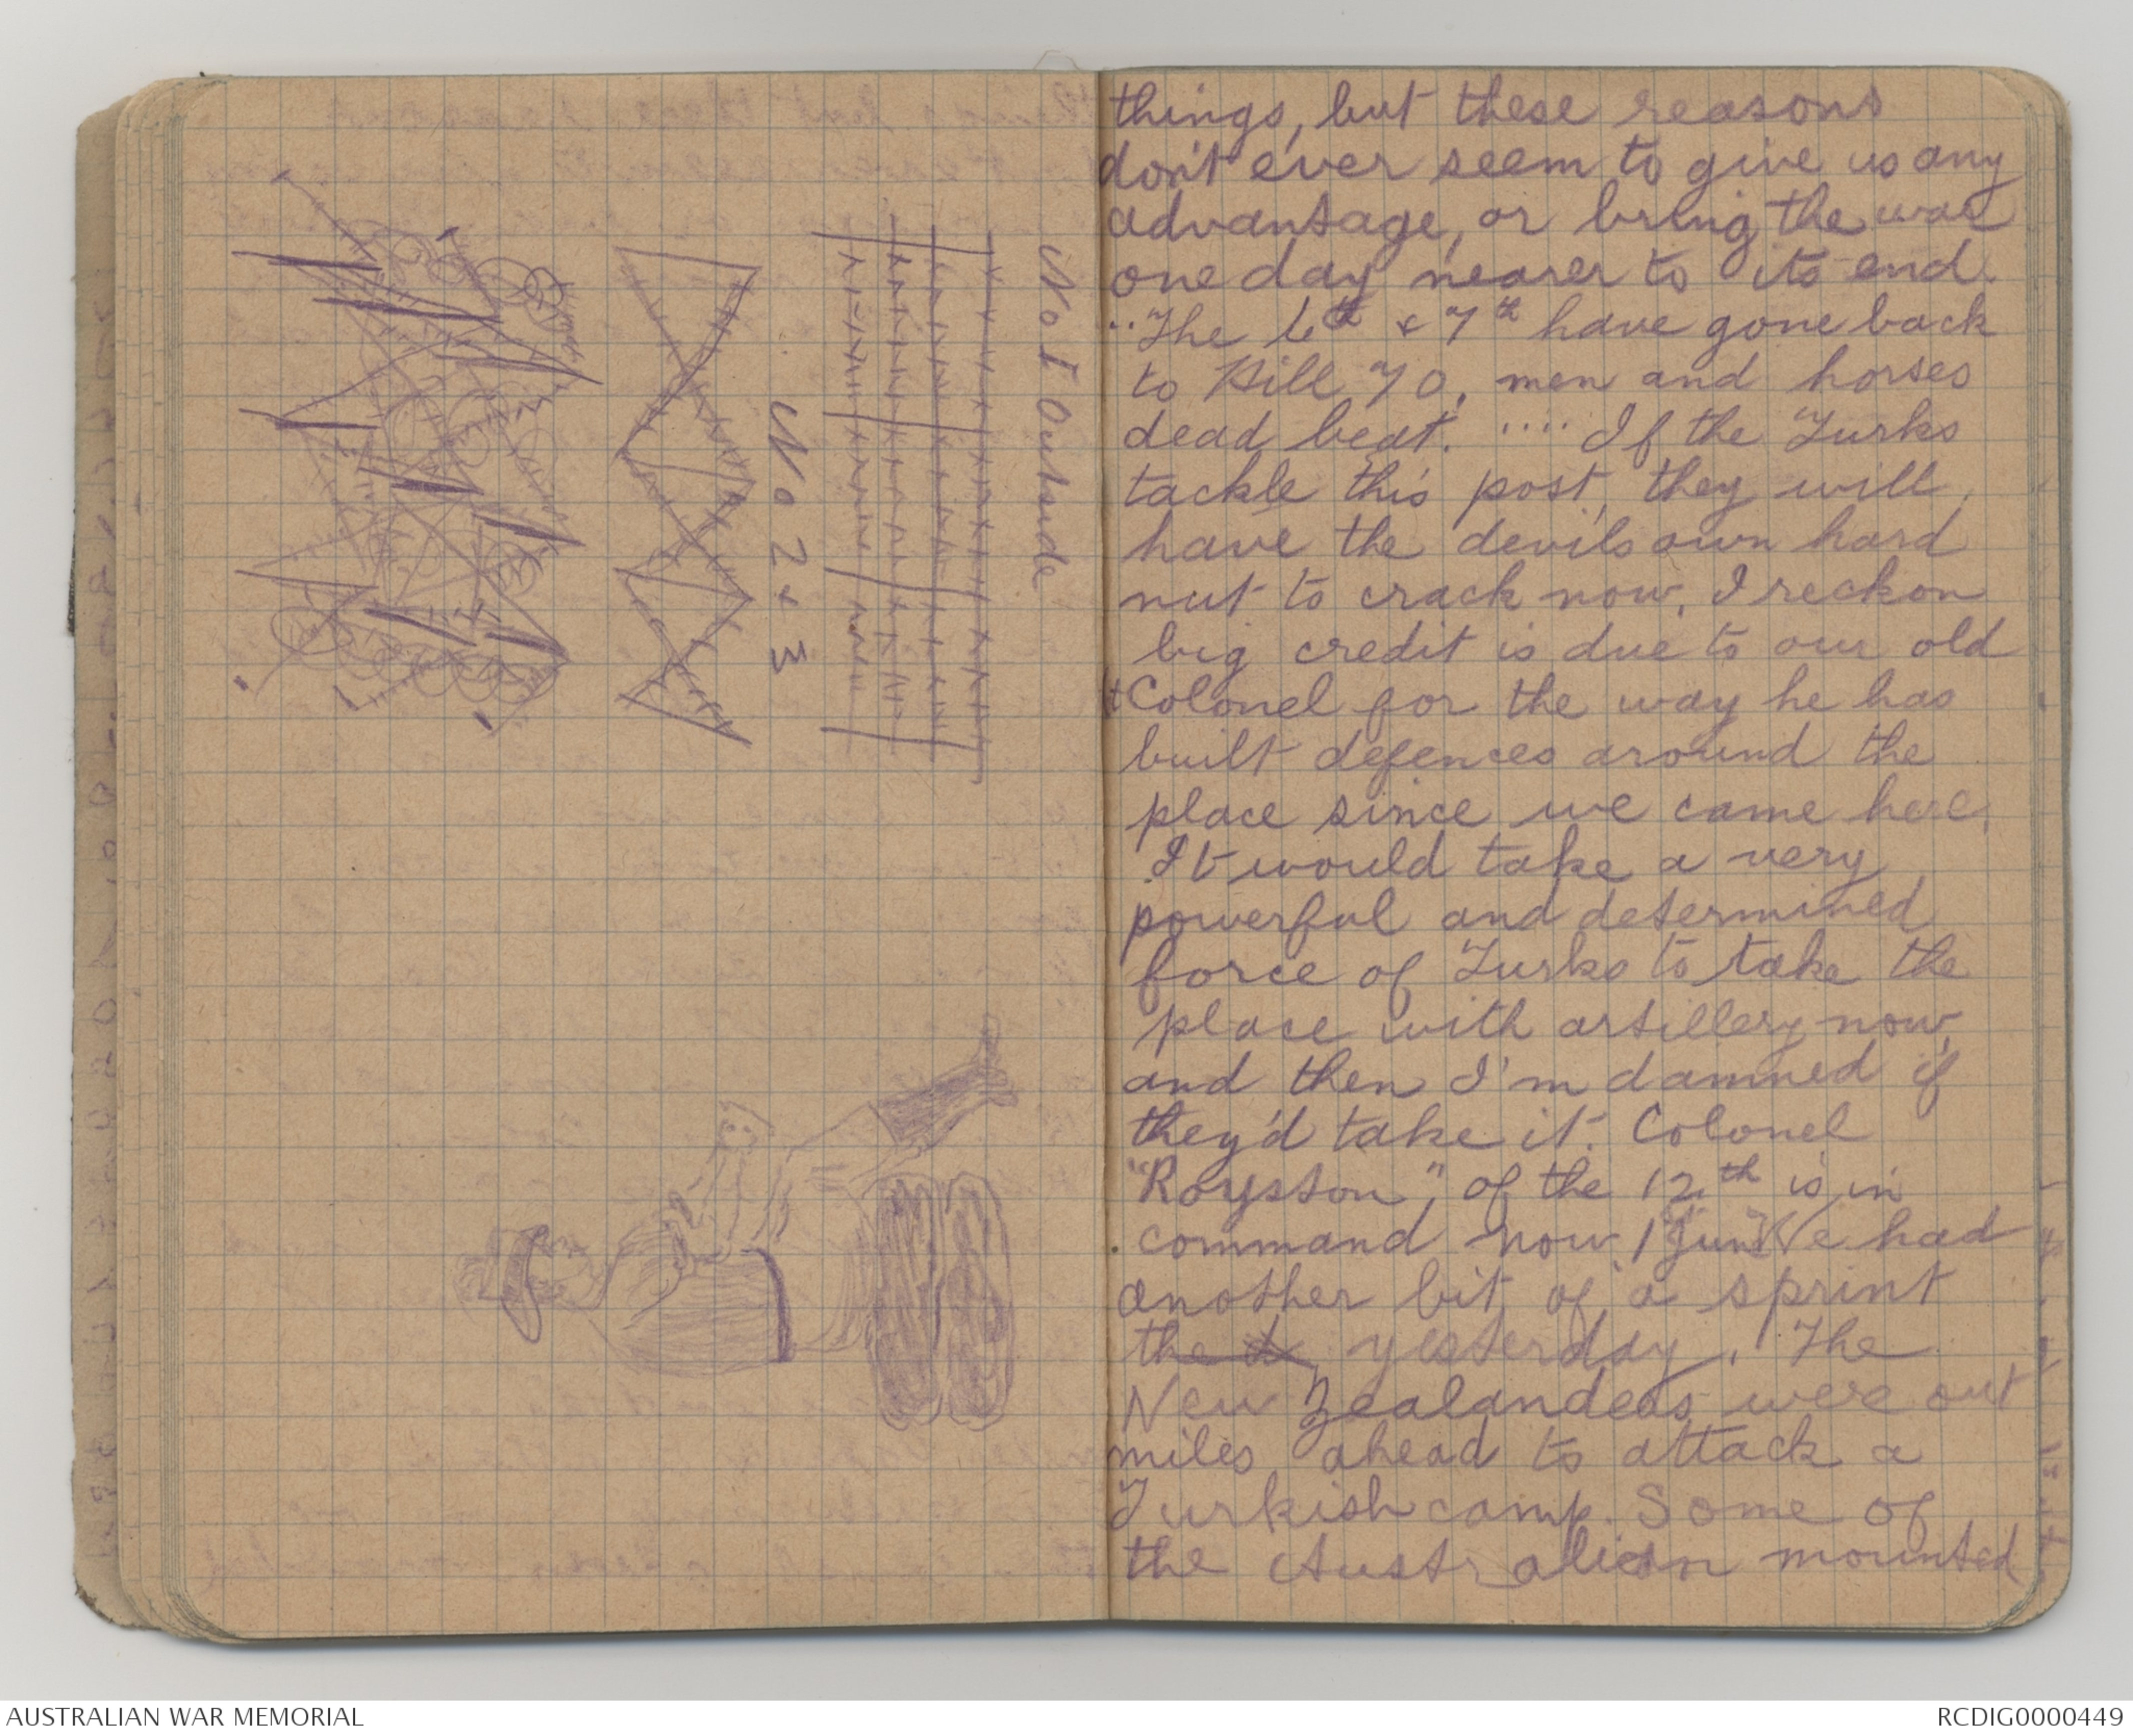 No I Outside
No 2 & 3
things, but these reasons
don't ever seem to give us any
advantage, or bring the war
one day nearer to its end.
..The 6th & 7th have gone back
to Hill 70, men and horses
dead beat. .... If the Turks
tackle this post, they will
have the devils own hard
nut to crack now. I reckon
big credit is due to our old
Colonel for the way he has
built defences around the
place since we came here.
It would take a very
powerful and determined
force of Turks to take the
place with artillery now,
and then I'm damned if
they'd take it. Colonel
"Royston", of the 12th is in
command now. 1 Jun We had
another bit of a sprint
the yesterday. The
New Zealanders were out
miles ahead to attack a
Turkish camp. Some of
the Australian mounted
AUSTRALIAN WAR MEMORIAL
RCDIG0000449